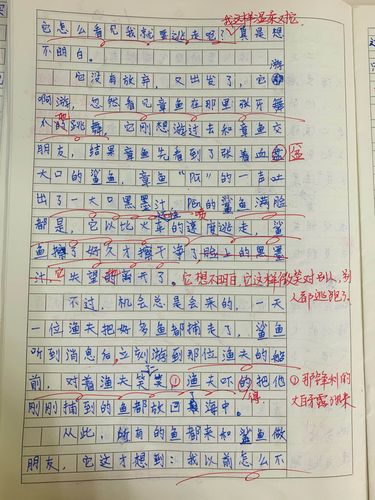 我这样温柔对它
它怎么看见我就要逃走呢？真是想
不明白。
它没有放弃，又出发了，它游
啊游，忽然看见章鱼在那里张牙舞
爪的跳舞，它刚想游过去和章鱼交
朋友，结果章鱼先看到了张着血盆
大口的鲨鱼，章鱼“pū”的一声吐
出了一大口黑墨汁，的鲨鱼满脸
都是，它以比火车的速度逃走，鲨
鱼擦了好久才擦干净了脸上的黑墨
汁，它失望的离开了。它想不明白，它这样微笑对别人，别
人都逃跑了。
不过，机会总是会来的，一天
一位渔夫把好多鱼都捕走了，鲨鱼
听到消息后，立刻游到那位渔夫的船
前，对着渔夫笑笑①渔夫吓的把他
①那锋利的
大白牙露出来
刚刚捕到的鱼都放回了海中。
得
从此，所有的鱼都来和鲨鱼做
朋友，它这才想到：我以前怎么不